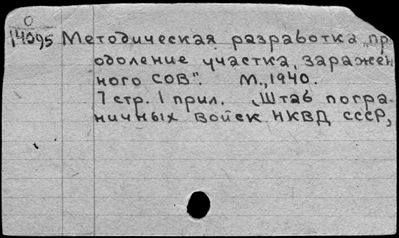 0
14095 Методическая разработка „пр
одоление участка, заражен
ного СОВ". М., 1940.
7 стр. 1 прил. „Штаб погра
ничных войск НКВД СССР,